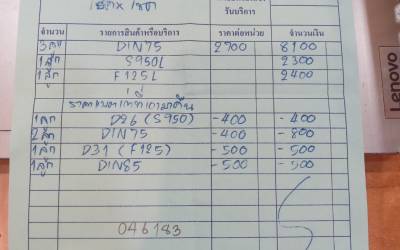 รับบริการ
จำนวน รายการสินค้าหรือบริการ ราคาต่อหน่วย จำนวนเงิน
3 ลูก DIN75 2700 8100
1 ลูก S950L 2300
1 ลูก F125L 2400
1 ลูก D26 (S950) -400 -400
2 ลูก DIN75 -400 -800
1 ลูก D31 (F125) -500 -500
1 ลูก DIN85 -500 -500
046183
Lenovo